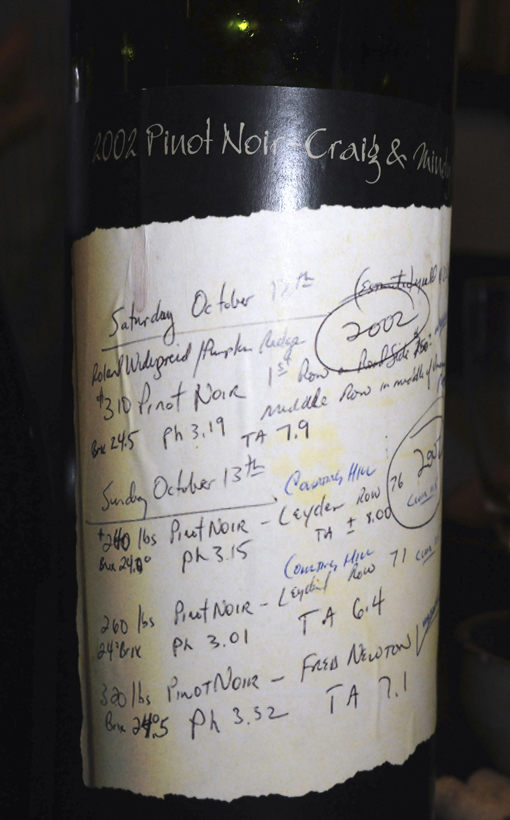 2002 Pinot Noir Craig &
Saturday October 12th
2002
Roland /Pumpkin Ridge
$310 Pinot Noir 1st Row Road Side
Middle Row in middle of
Brix 24.5 Ph 3.19 TA 7.9
Sunday October 13th
Country Hill
240 lbs Pinot Noir - Leyder Row 76
Brix 24.0° Ph 3.15 TA ± 8.00
Country Hill
260 lbs Pinot Noir - Row 71
24° Brix Ph 3.01 TA 6.4
320 lbs Pinot Noir - Fred Newton
Brix 24.5 Ph 3.52 TA 7.1